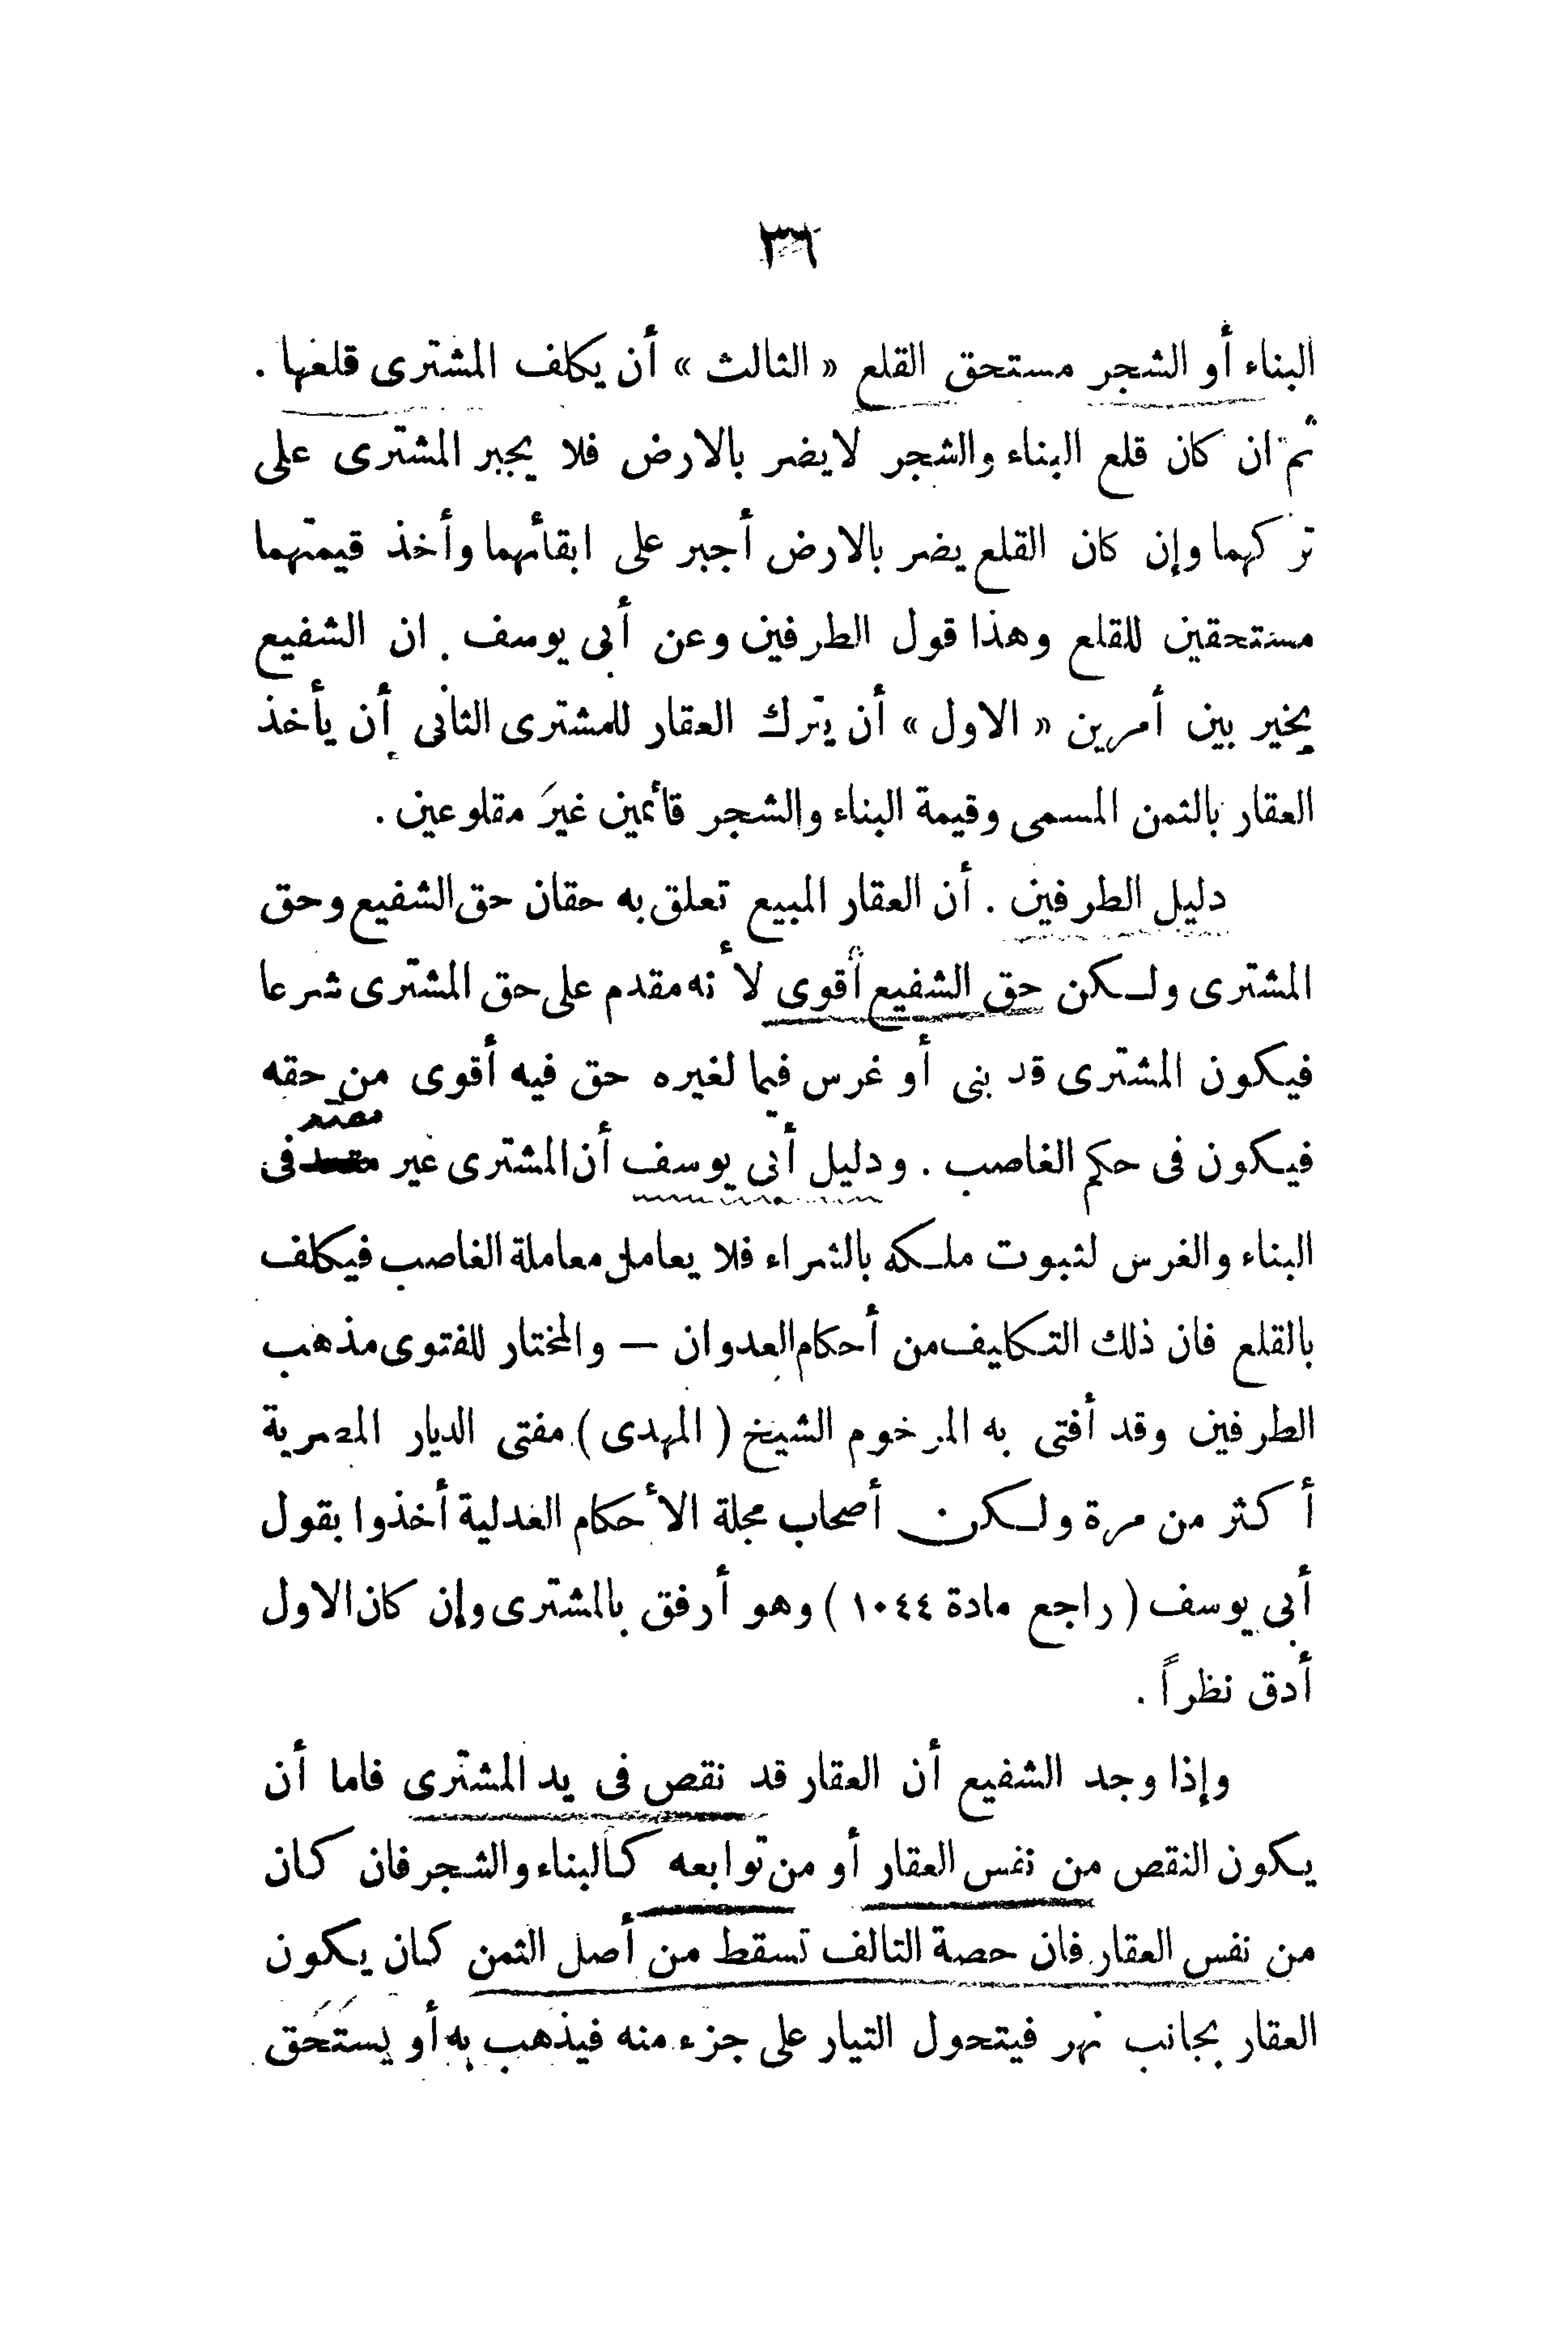 ٣٦
البناء أو الشجر مستحق القلع « الثالث » أن يكلف المشترى قلعها .
ثم ان كان قلع البناء والشجر لايضر بالارض فلا يجبر المشترى على
تركهما وإن كان القلع يضر بالارض أجبر على ابقائهما وأخذ قيمتهما
مستحقين للقلع وهذا قول الطرفين وعن أبى يوسف . ان الشفيع
يخير بين أمرين « الاول » أن يترك العقار للمشترى الثانى أن يأخذ
العقار بالثمن المسمى وقيمة البناء والشجر قائمين غيرَ مقلوعين .
دليل الطرفين . أن العقار المبيع تعلق به حقان حق الشفيع وحق
المشترى ولكن حق الشفيع أقوى لأنه مقدم على حق المشترى شرعا
فيكون المشترى قد بنى أو غرس فيما لغيره حق فيه أقوى من حقه
فيكون فى حكم الغاصب . ودليل أبى يوسف أن المشترى غير فى
البناء والغرس لثبوت ملكه بالشراء فلا يعامل معاملة الغاصب فيكلف
بالقلع فان ذلك التكليف من أحكام العدوان — والمختار للفتوى مذهب
الطرفين وقد أفتى به المرحوم الشيخ ( المهدى ) مفتى الديار المصرية
أكثر من مرة ولكن أصحاب مجلة الأحكام العدلية أخذوا بقول
أبى يوسف ( راجع مادة ١٠٤٤ ) وهو أرفق بالمشترى وإن كان الاول
أدق نظراً .
وإذا وجد الشفيع أن العقار قد نقص فى يد المشترى فاما أن
يكون النقص من نفس العقار أو من توابعه كالبناء والشجر فان كان
من نفس العقار فان حصة التالف تسقط من أصل الثمن كان يكون
العقار بجانب نهر فيتحول التيار على جزء منه فيذهب به أو يستَحَق